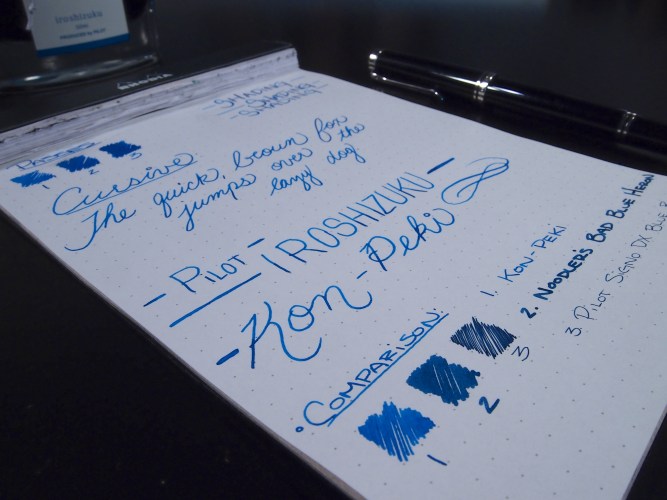 iroshizuku
PRODUCED by PILOT
RHODIA
SHADING
SHADING
SHADING
PASSES
1 2 3
Cursive
The quick, brown fox
jumps over the
lazy dog
- PILOT -
IROSHIZUKU -
- Kon-Peki
• COMPARISON:
1 2 3
1. KON-PEKI
2. NOODLER'S BAD BLUE HERON
3. PILOT SIGNO DX BLUE B